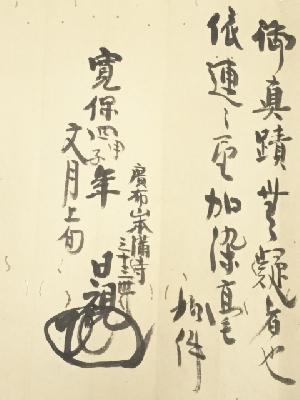 御真蹟無疑者也
依連々望加染毫
如件
寛保四甲子年
文月上旬
廣布山本満寺
三十三世
日観